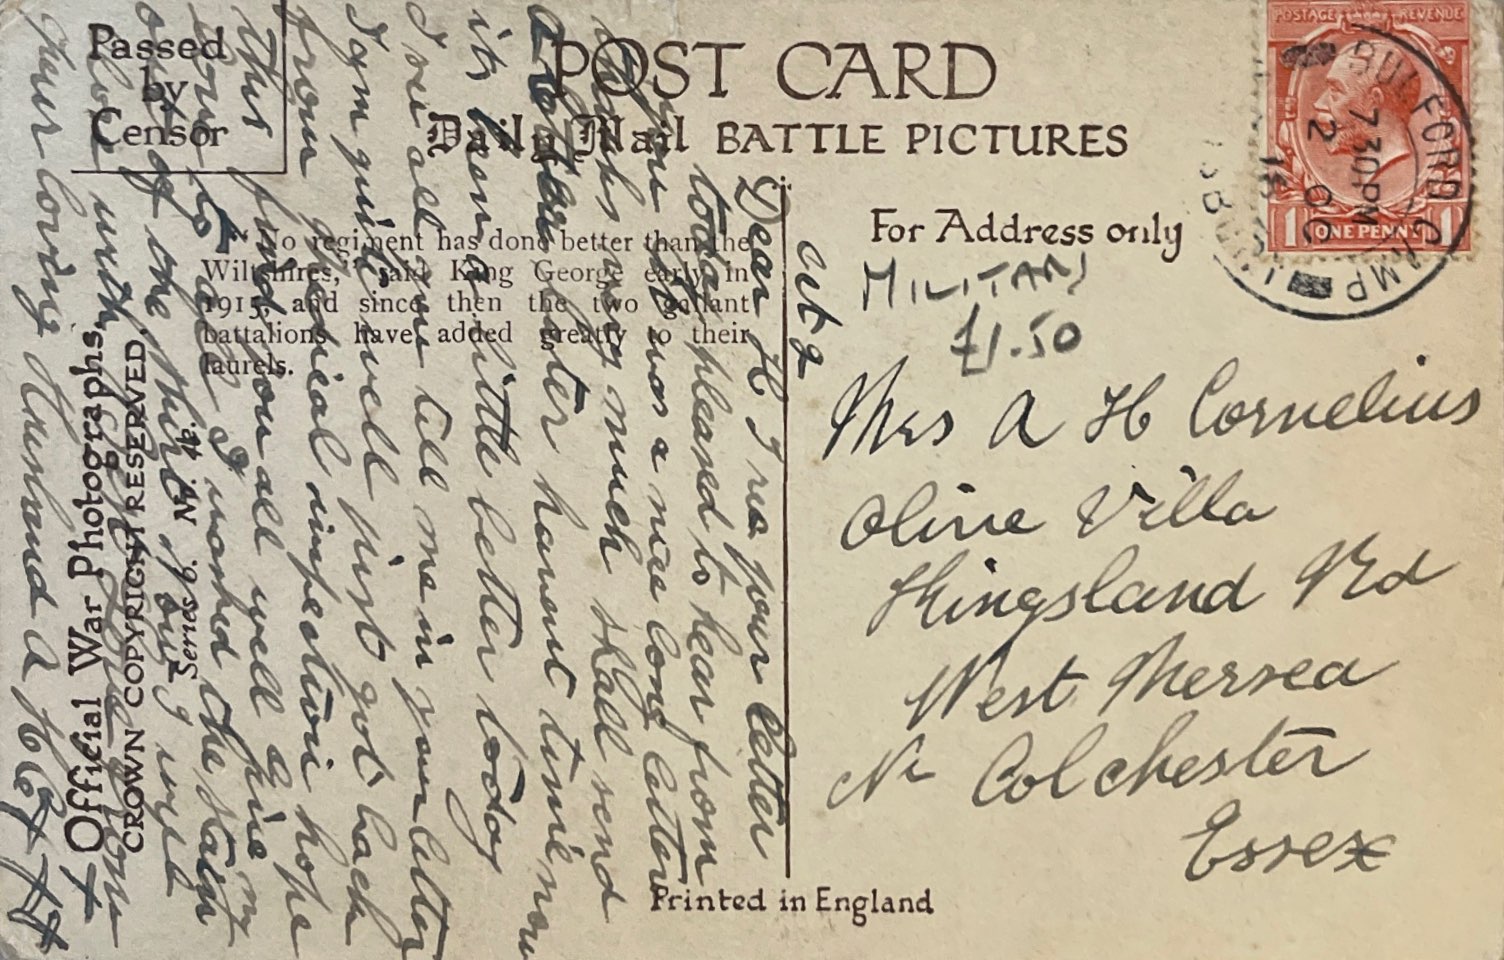 Passed
by
Censor
POST CARD
Daily Mail BATTLE PICTURES
For Address only
"No regiment has done better than the
Wiltshires," said King George early in
1915, and since then the two gallant
battalions have added greatly to their
laurels.
Official War Photographs,
CROWN COPYRIGHT RESERVED.
Series 6. No. 4.
Printed in England
POSTAGE REVENUE
1 ONE PENNY 1
BULFORD CAMP
7.30PM
2 OC
16
MILITARY
£1.50
Mrs A H Cornelius
Oline Villa
Kingsland Rd
West Mersea
Nr Colchester
Essex
Oct 2
Dear H I rec your letter
today pleased to hear from
you it was a nice long letter
thanks very much shall send
a letter later havent time now
its been a little better today
I see all you tell me in your letter
I am quite well just got back
from medical inspection hope
this finds you all well give my
love to all I marked the
out of the
love with
Your loving Husband A H